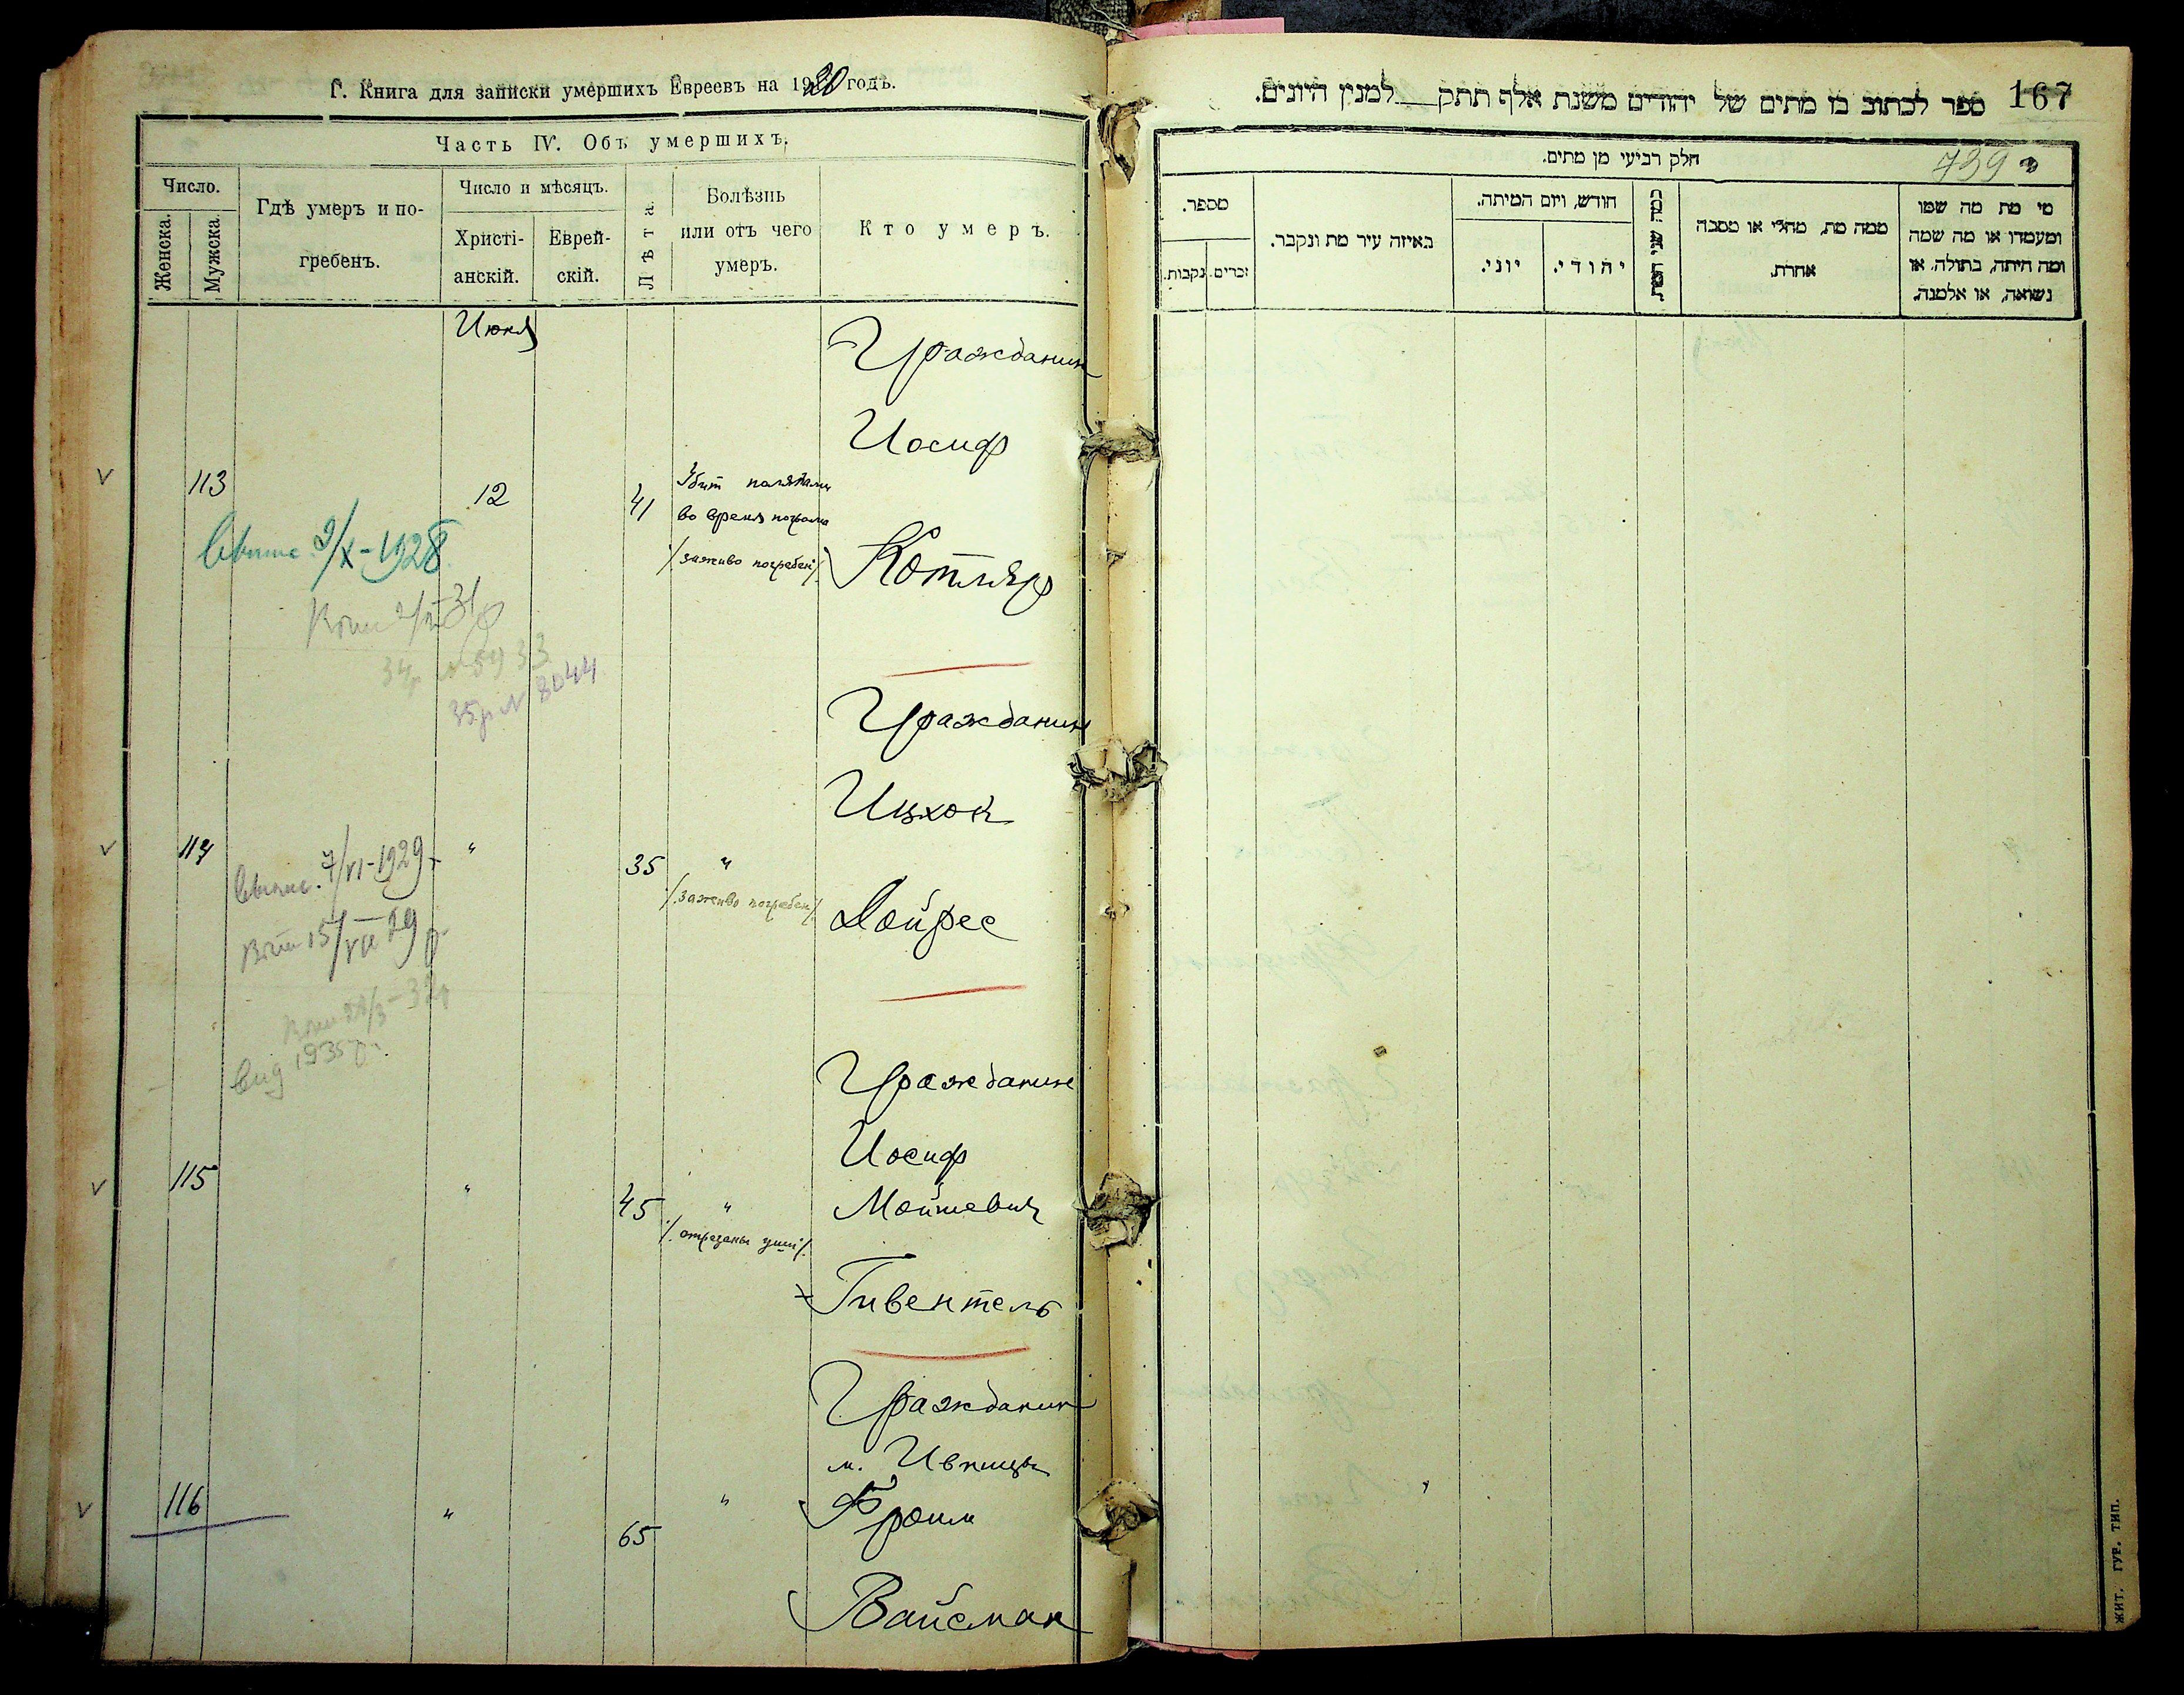 Г. Книга для записки умершихъ Евреевъ на 1920 годъ.
Часть IV. Объ умершихъ.
Число.
Женска.
Мужска.
Гдѣ умеръ и по-
гребенъ.
Число и мѣсяцъ.
Христі-
анскій.
Еврей-
скій.
Лѣта.
Болѣзнь
или отъ чего
умеръ.
Кто умеръ.
Июля
Гражданин
Иосиф
113
12
41
Убит поляками
во время погрома
/.заживо погребен/.
Котляр
2/X-1928
34 р N 5933
35 р N 8044
Гражданин
Ицхок
114
"
35
"
/.заживо погребен/.
Лойрес
выпис. 7/VI-1929
15/VII 29 р.
1935 р.
Гражданин
Иосиф
115
"
45
"
Мойшевич
/.отрезаны уши/.
Гивентель
Гражданин
м. Ивницы
116
"
65
"
Фроим
Вайсман
167
ספר לכתוב בו מתים של יהודים משנת אלף תתק למנין היונים.
739
חלק רביעי מן מתים.
מספר.
נקבות.
זכרים.
באיזה עיר מת ונקבר.
חודש, ויום המיתה.
יוני.
יהודי.
כמה שני המת
ממה מת, מחלי או מסבה
אחרת.
מי מת מה שמו
ומעמדו או מה שמה
ומה היתה, בתולה, או
נשואה, או אלמנה.
ЖИТ. ГУБ. ТИП.